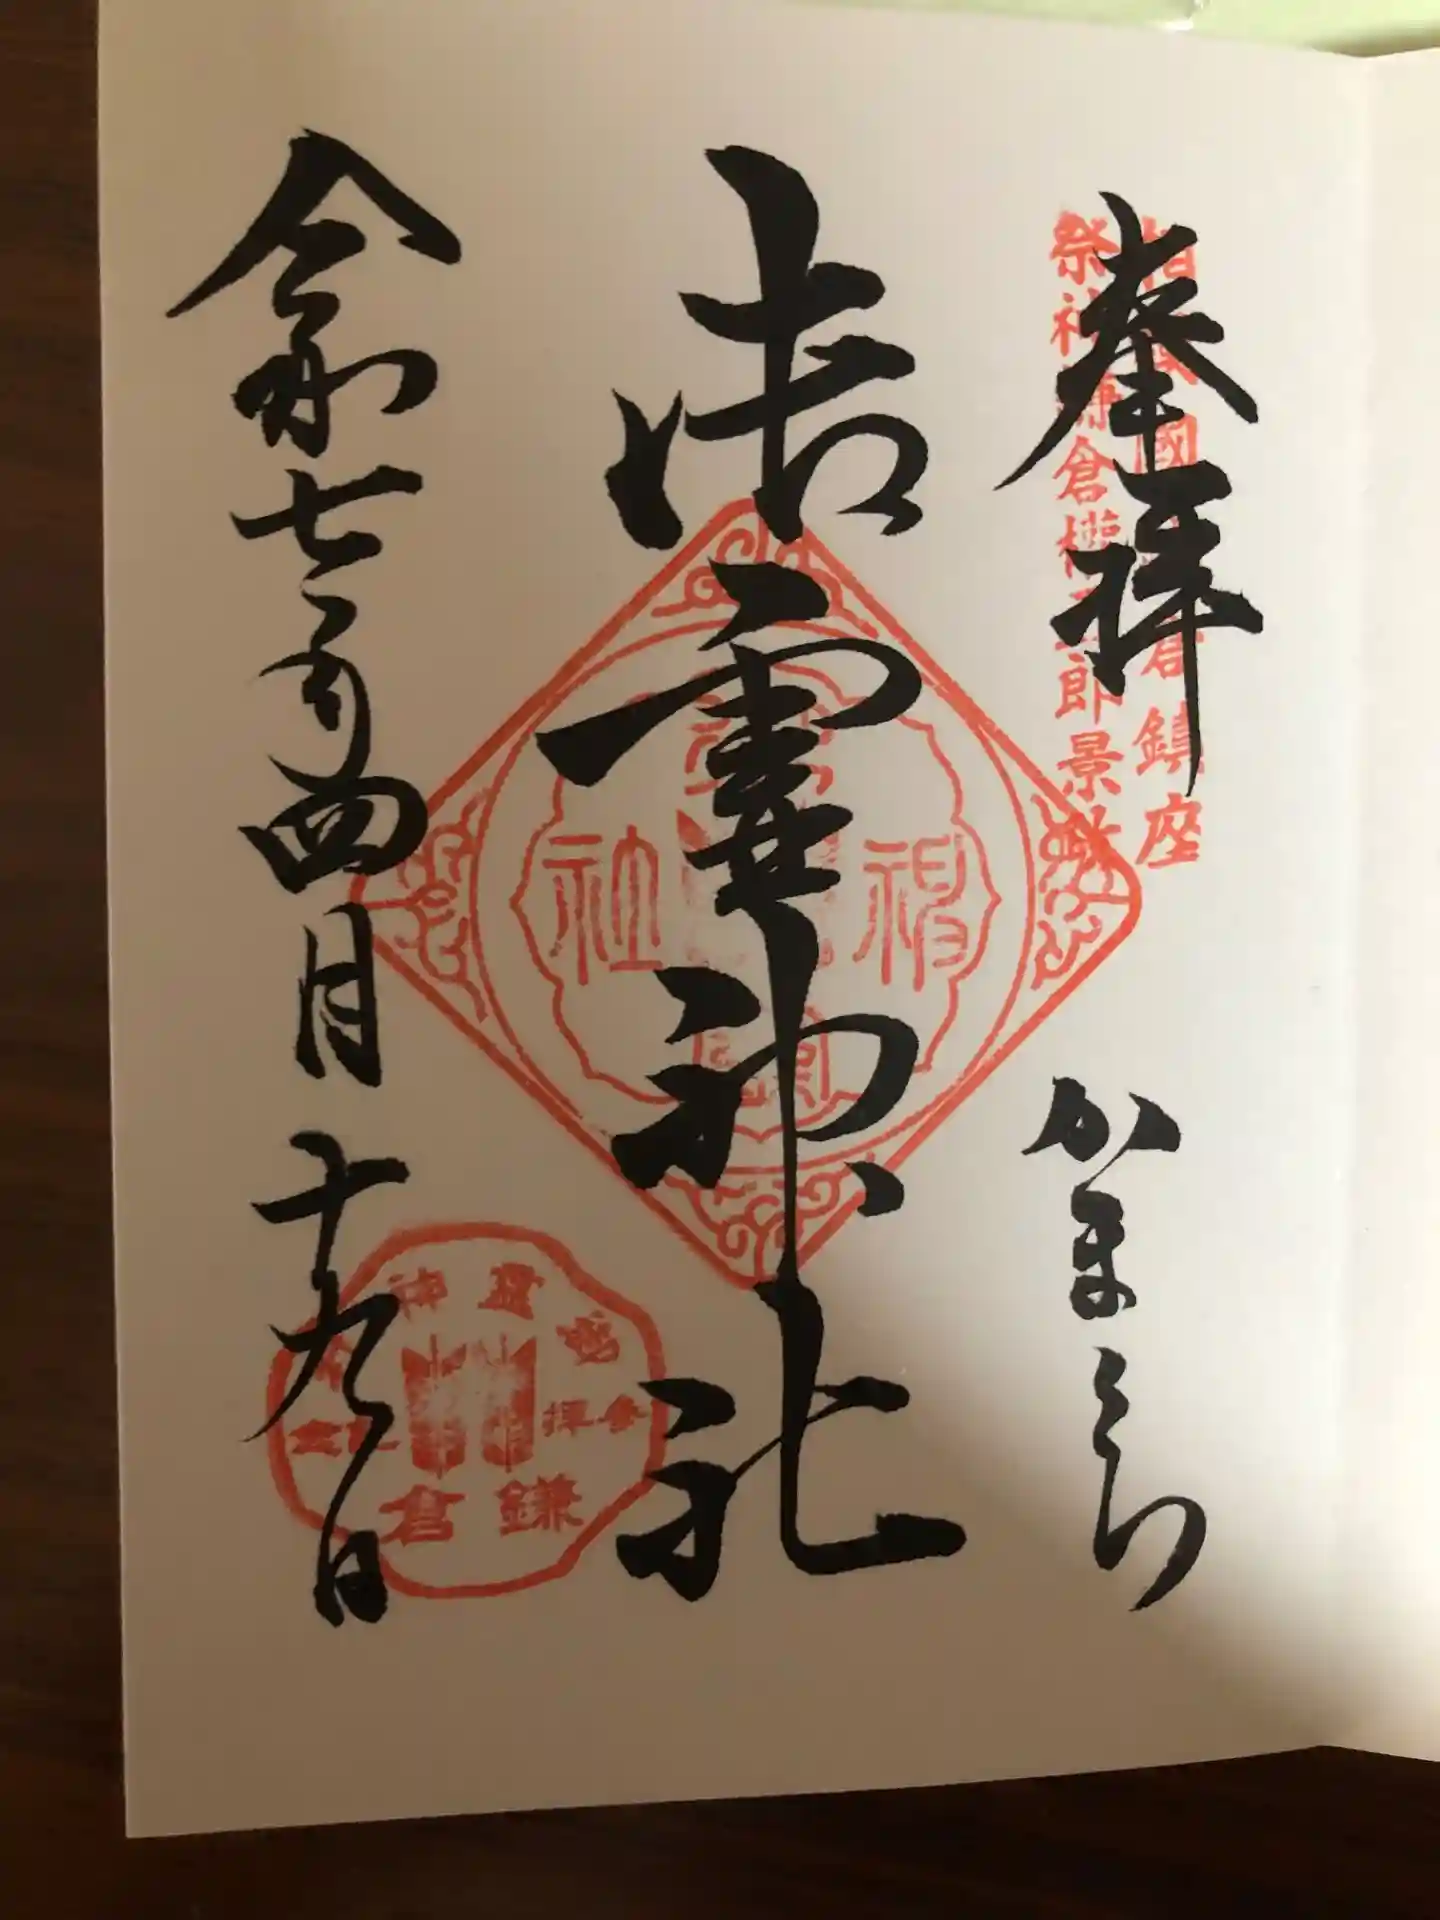 奉拝
かまくら
相模國鎌倉鎮座
祭神鎌倉権五郎景政
御霊神社
令和七年四月十九日
神社
御霊神社
参拝記念
鎌倉